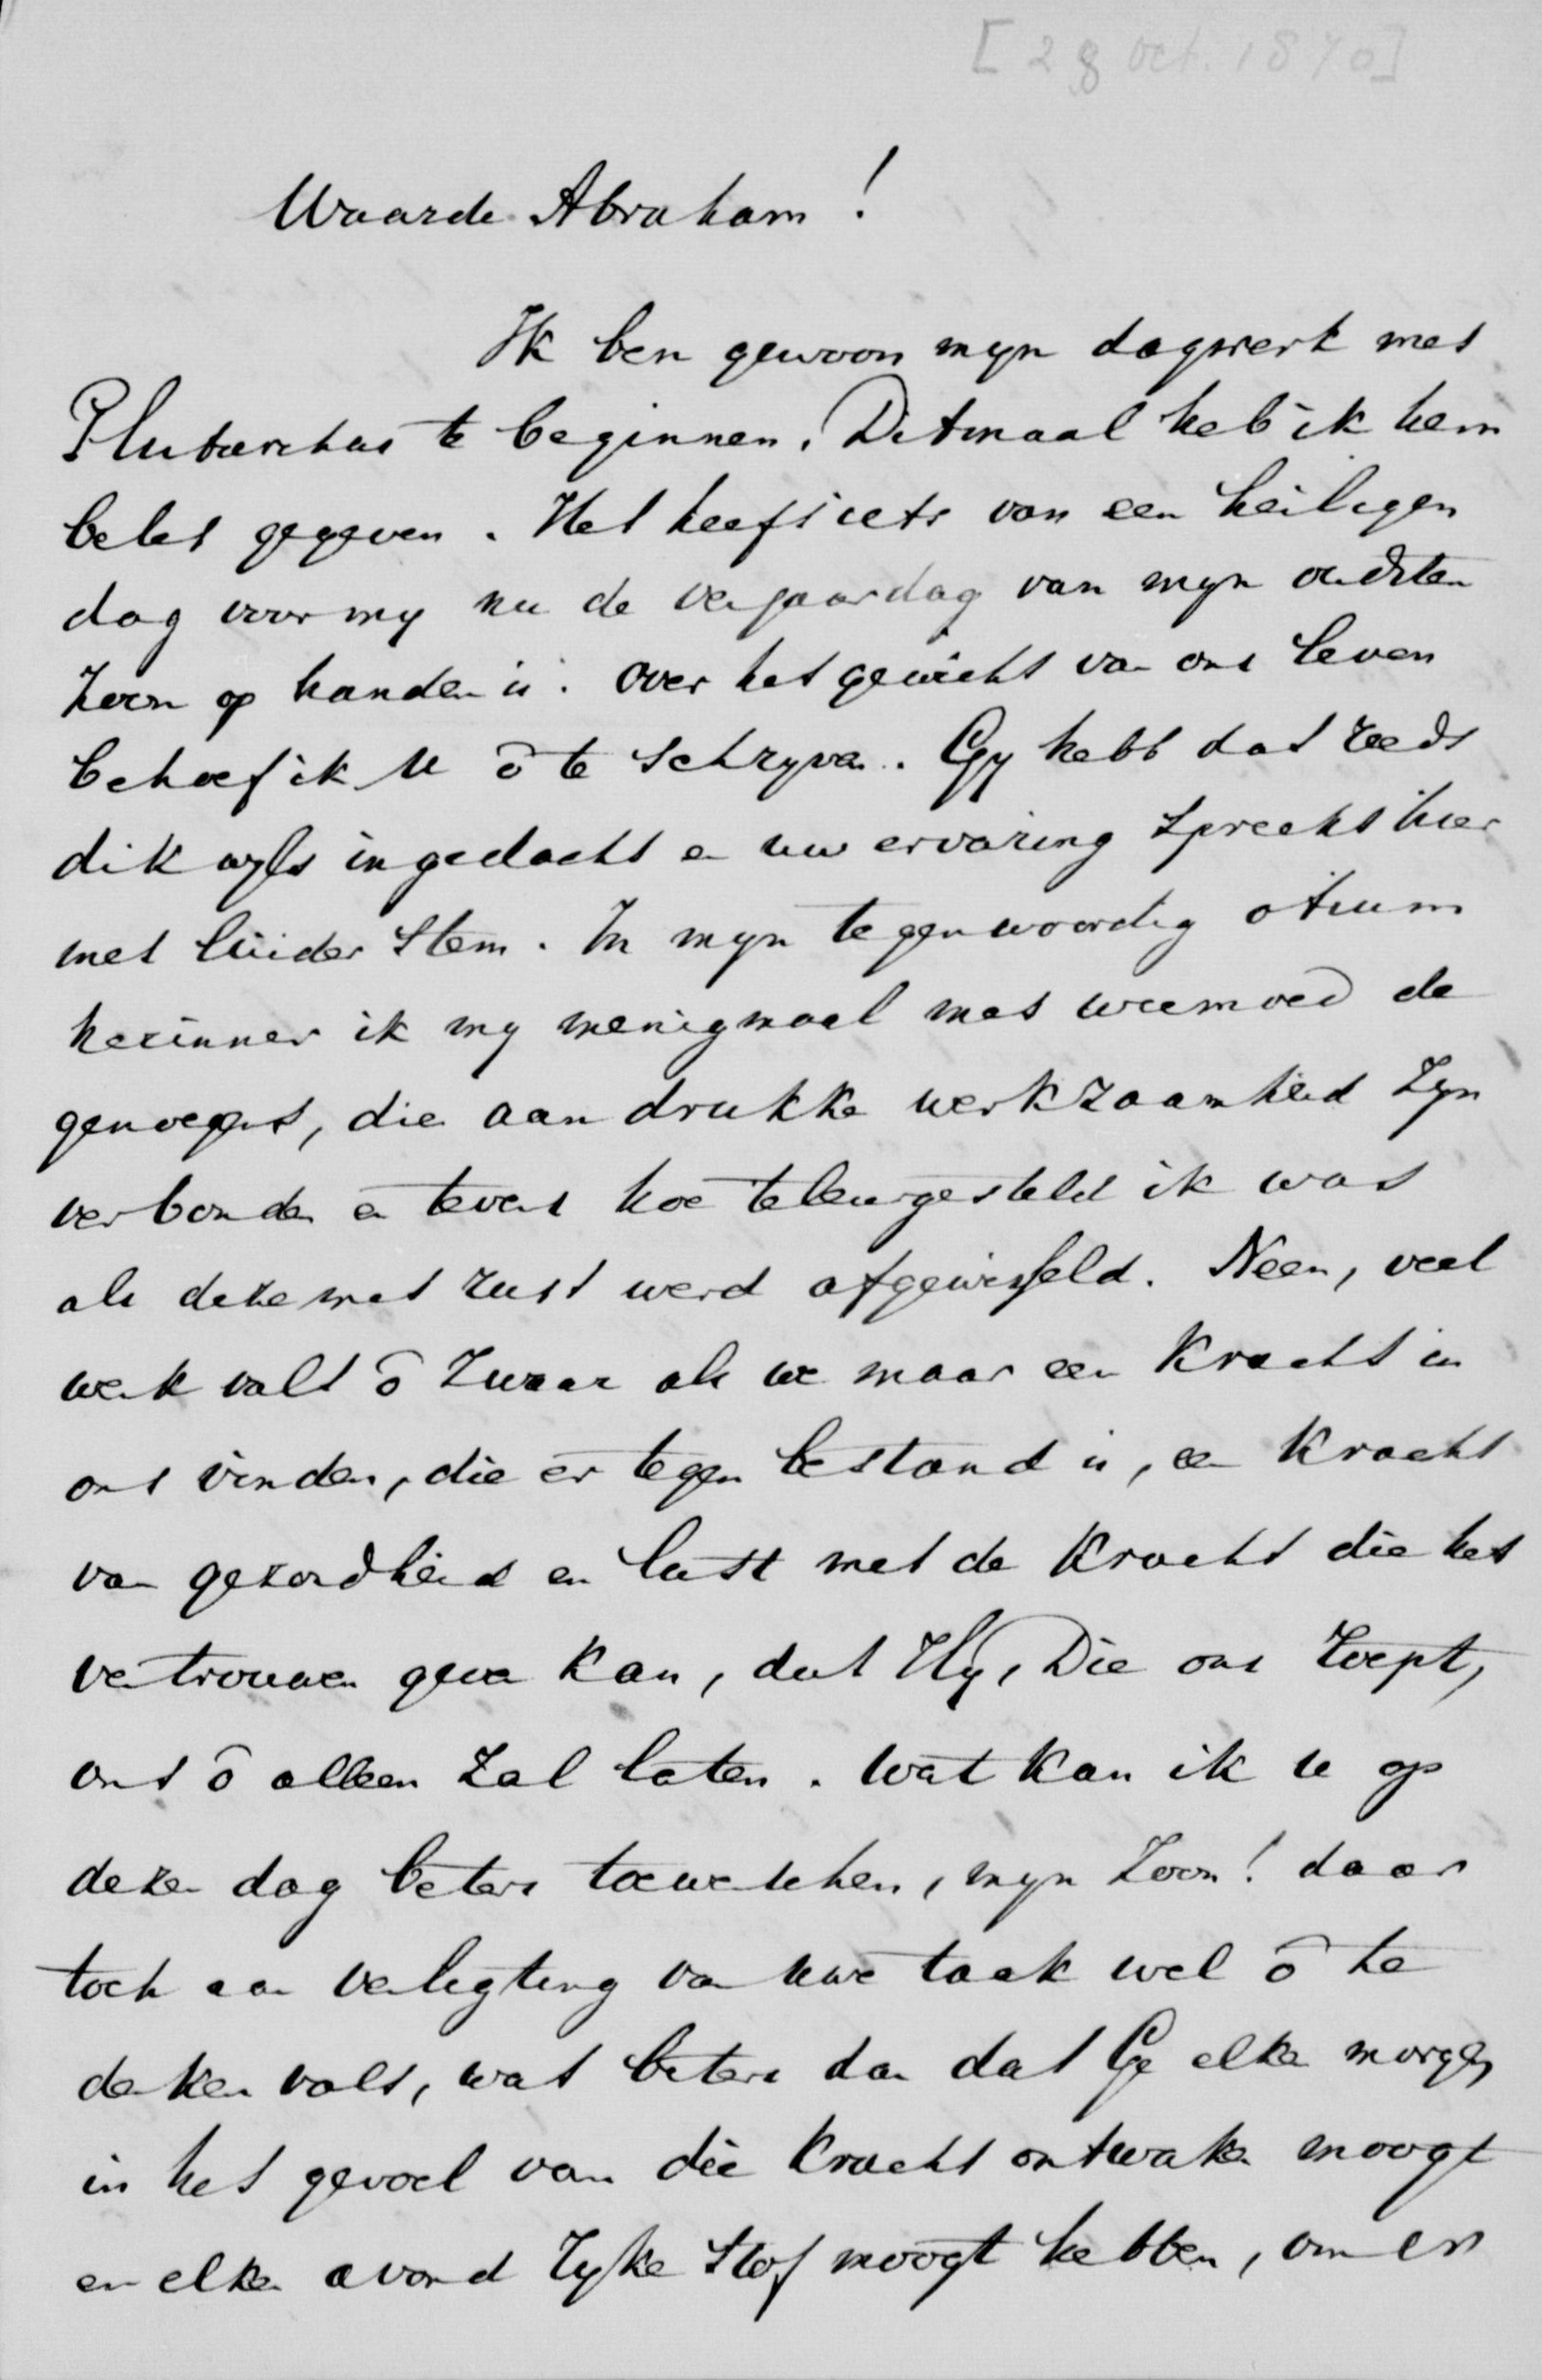 [28 oct. 1870]
Waarde Abraham!
Ik ben gewoon mijn dagwerk met
Plutarchus te beginnen. Ditmaal heb ik hem
belet gegeven. Het heeft iets van een heiligen
dag voor my nu de verjaardag van mijn oudsten
zoon op handen is. Over het gewicht van ons leven
behoef ik U ō te schryven. Gy hebt dat reeds
dikwyls ingedacht en uw ervaring spreekt hier
met luider stem. In mijn tegenwoordig otium
herinner ik my menigmaal met weemoed de
genoegens, die aan drukke werkzaamheid zyn
verbonden en tevens hoe teleurgesteld ik was
als deze met rust werd afgewisseld. Neen, veel
werk valt ō zwaar als we maar een kracht in
ons vinden, die er tegen bestand is, een kracht
van gezondheid en lust met de kracht die het
vertrouwen geven kan, dat Hy, Die ons roept,
ons ō alleen zal laten. Wat kan ik U op
dezen dag beters toewenschen, mijn zoon! daar
toch aan verligting van uwe taak wel ō te
denken valt, wat beters dan dat Ge elken morgen
in het gevoel van die kracht ontwaken moogt
en elken avond ryke stof moogt hebben, om er